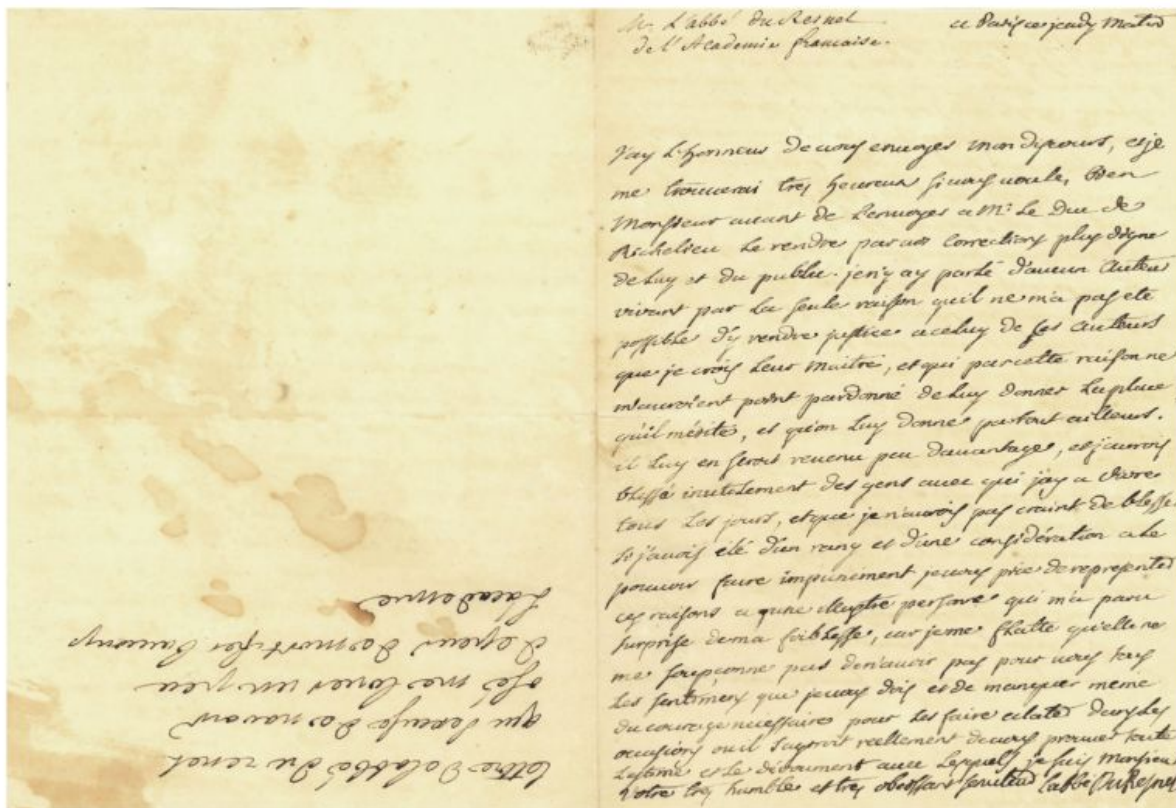 Mr L'abbé du Resnel
de l'Academie francaise.
a Paris ce jeudy matin
J'ay L'honneur de vous envoyer mon discours, et je
me trouverai tres heureux si vous voulez bien
Monsieur avant de L'envoyer a Mr. Le Duc de
Richelieu Le rendre par vos corrections plus digne
de Luy et du public. je n'y ay parlé d'aucun Auteur
vivant par La seule raison qu'il ne m'a pas eté
possible d'y rendre justice a celuy de ses auteurs
que je crois Leur maitre, et qui par cette raison ne
m'auroient point pardonné de Luy donner La place
qu'il mérite, et qu'on Luy donne partout ailleurs.
il Luy en seroit revenu peu davantage, et j'aurois
blessé inutilement des gens avec qui j'ay a vivre
tous Les jours, et que je n'aurois pas craint de blesser
si j'avois été d'un rang et d'une considération a Le
pouvoir faire impunément je vous prie de representer
ces raisons a une illustre personne qui m'a paru
surprise de ma foiblesse, car je me flatte qu'elle ne
me soupconne pas de n'avoir pas pour vous tous
Les sentimens que je vous dois et de manquer meme
du courage necessaire pour Les faire eclater dans Les
occasions ou il s'agiroit reellement de vous prouver toute
L'estime et Le dévoument avec Lesquels je suis Monsieur
Votre tres humble et tres obeissant serviteur L'abbé Du Resnel
lettre de labbé du renel
qui sexcuse de navoir
osé me louer un peu
de peur de mortifier
Lacademie